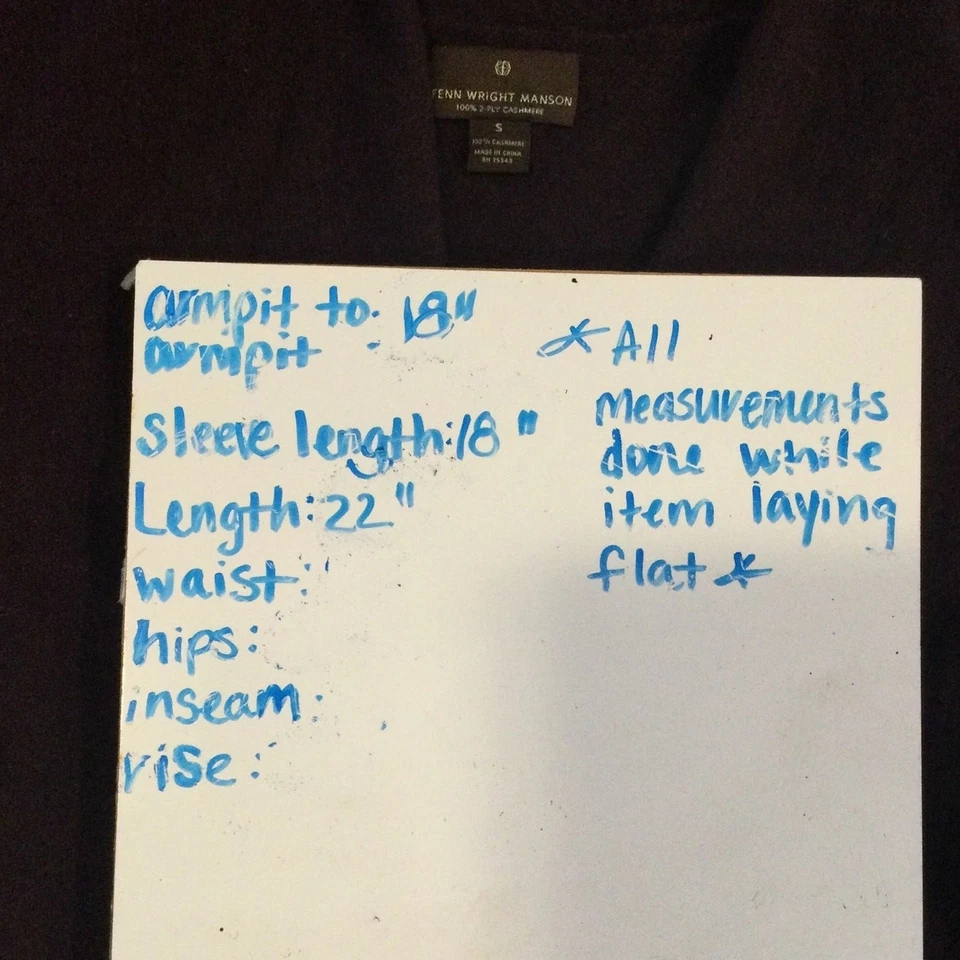 FENN WRIGHT MANSON
100% 2-PLY CASHMERE
S
100% CASHMERE
MADE IN CHINA
RN 75343
armpit to: 18"
armpit
sleeve length: 18"
Length: 22"
waist:
hips:
inseam:
rise:
*All
measurements
done while
item laying
flat*